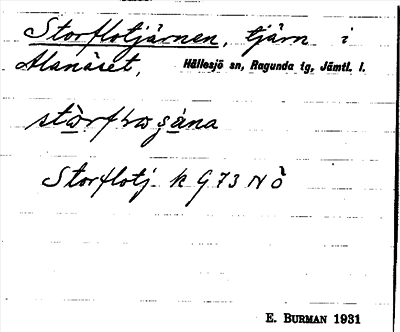 Storflotjärnen, tjärn i
Alanäset, Hällesjö sn, Ragunda tg, Jämtl. l.
Storflotj. k G 73 N Ö
E. BURMAN 1931